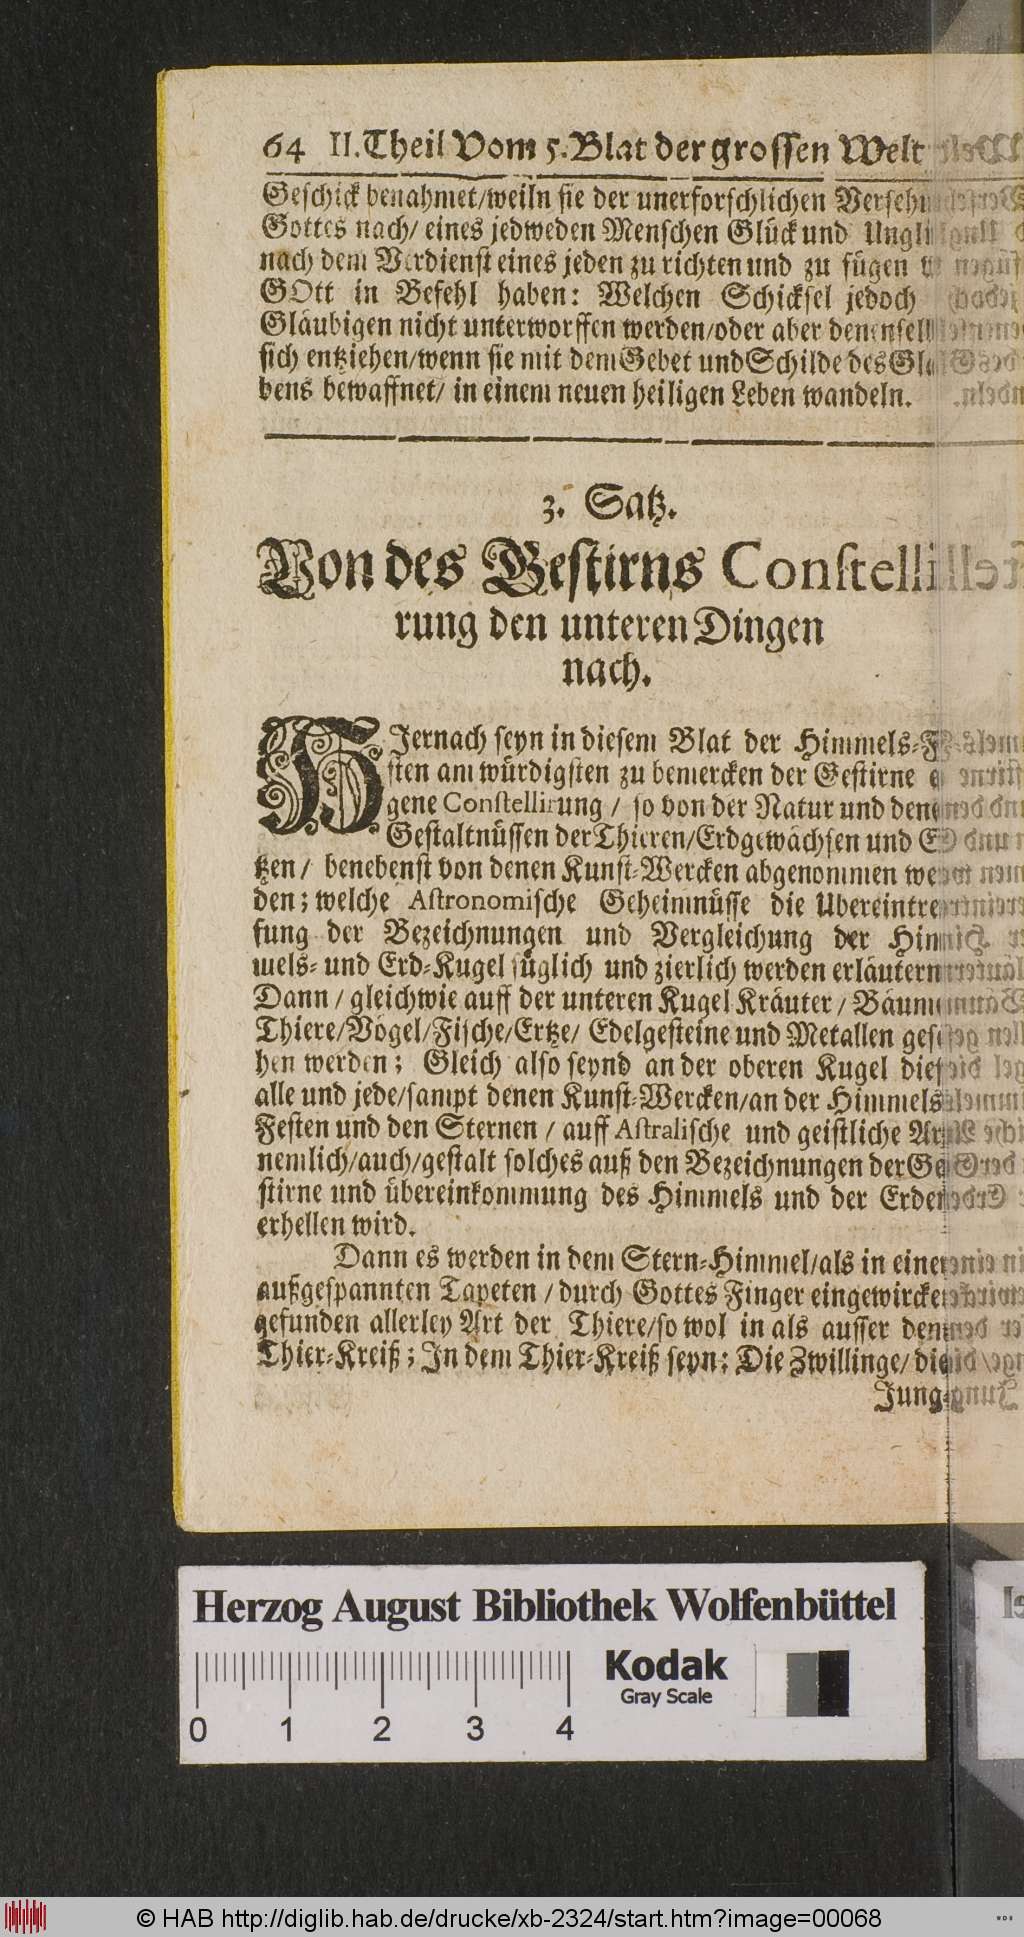 64 II. Theil Vom 5. Blat der grossen Welt
Geschick benahmet/weiln sie der unerforschlichen Verseh
Gottes nach/ eines jedweden Menschen Glück und Ungl
nach dem Verdienst eines jeden zu richten und zu fügen
GOtt in Befehl haben: Welchen Schicksel jedoch
Gläubigen nicht unterworffen werden/oder aber denensel
sich entziehen/wenn sie mit dem Gebet und Schilde des Gl
bens bewaffnet/ in einem neuen heiligen Leben wandeln.
3. Satz.
Von des Gestirns Constelli
rung den unteren Dingen
nach.
HIernach seyn in diesem Blat der Himmels-F
sten am würdigsten zu bemercken der Gestirne
gene Constellirung / so von der Natur und den
Gestaltnüssen der Thieren/Erdgewächsen und E
tzen / benebenst von denen Kunst-Wercken abgenommen we
den; welche Astronomische Geheimnüsse die Ubereintref
fung der Bezeichnungen und Vergleichung der Him
mels- und Erd-Kugel füglich und zierlich werden erläutern
Dann / gleichwie auff der unteren Kugel Kräuter / Bäum
Thiere/Vögel/Fische/Ertze/ Edelgesteine und Metallen gese
hen werden; Gleich also seynd an der oberen Kugel dies
alle und jede/sampt denen Kunst-Wercken/an der Himmels
Festen und den Sternen / auff Astralische und geistliche Art
nemlich/auch/gestalt solches auß den Bezeichnungen der Ge
stirne und übereinkommung des Himmels und der Erden
erhellen wird.
Dann es werden in dem Stern-Himmel/als in einer
außgespannten Tapeten / durch Gottes Finger eingewircket
gefunden allerley Art der Thiere/so wol in als ausser dem
Thier-Kreiß; In dem Thier-Kreiß seyn: Die Zwillinge/ die
Jung-
Herzog August Bibliothek Wolfenbüttel
Kodak
Gray Scale
0 1 2 3 4
© HAB http://diglib.hab.de/drucke/xb-2324/start.htm?image=00068